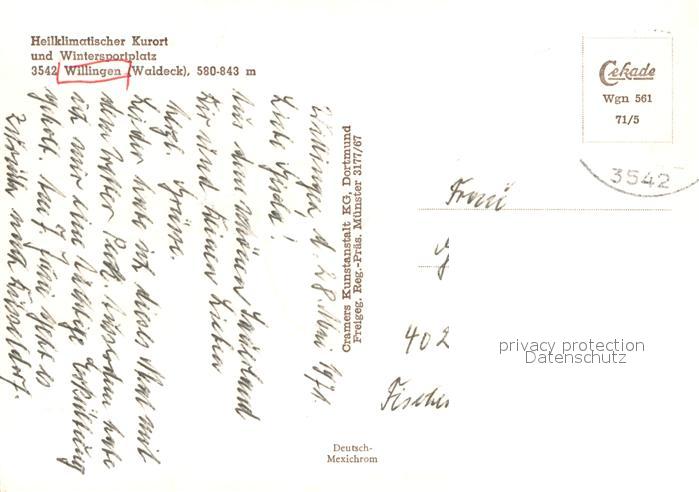 Heilklimatischer Kurort
und Wintersportplatz
3542 Willingen (Waldeck), 580-843 m
Cekade
Wgn 561
71/5
3542
Willingen, d. 28. Mai 1971.
Liebe Gerda!
Aus dem schönen Sauerland
Dir und Deinen Lieben
herzl. Grüsse.
Leider habe ich dieses Mal mit
dem Wetter Pech. Ausserdem habe
ich mir eine Erkältung
geholt. Am 7. Juni geht es
zurück nach Düsseldorf.
Cramers Kunstanstalt KG, Dortmund
Freigeg. Reg.-Präs. Münster 3177/67
Frau
402
Fischer
privacy protection
Datenschutz
Deutsch-
Mexichrom